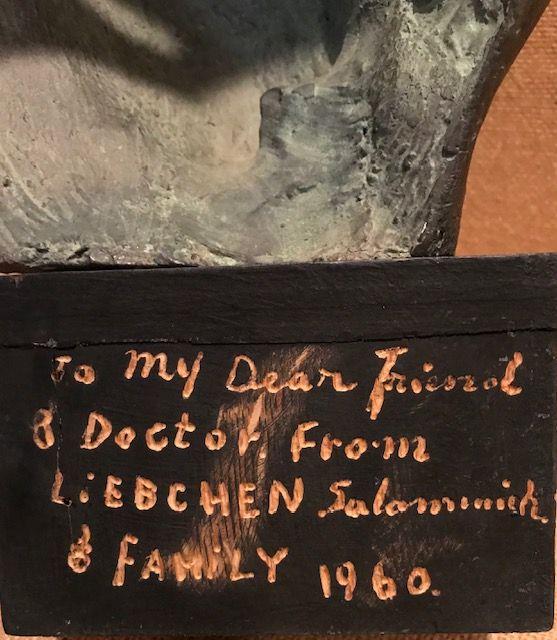 To My Dear Friend
& Doctor. From
LiEBCHEN
& FAMiLY 1960.